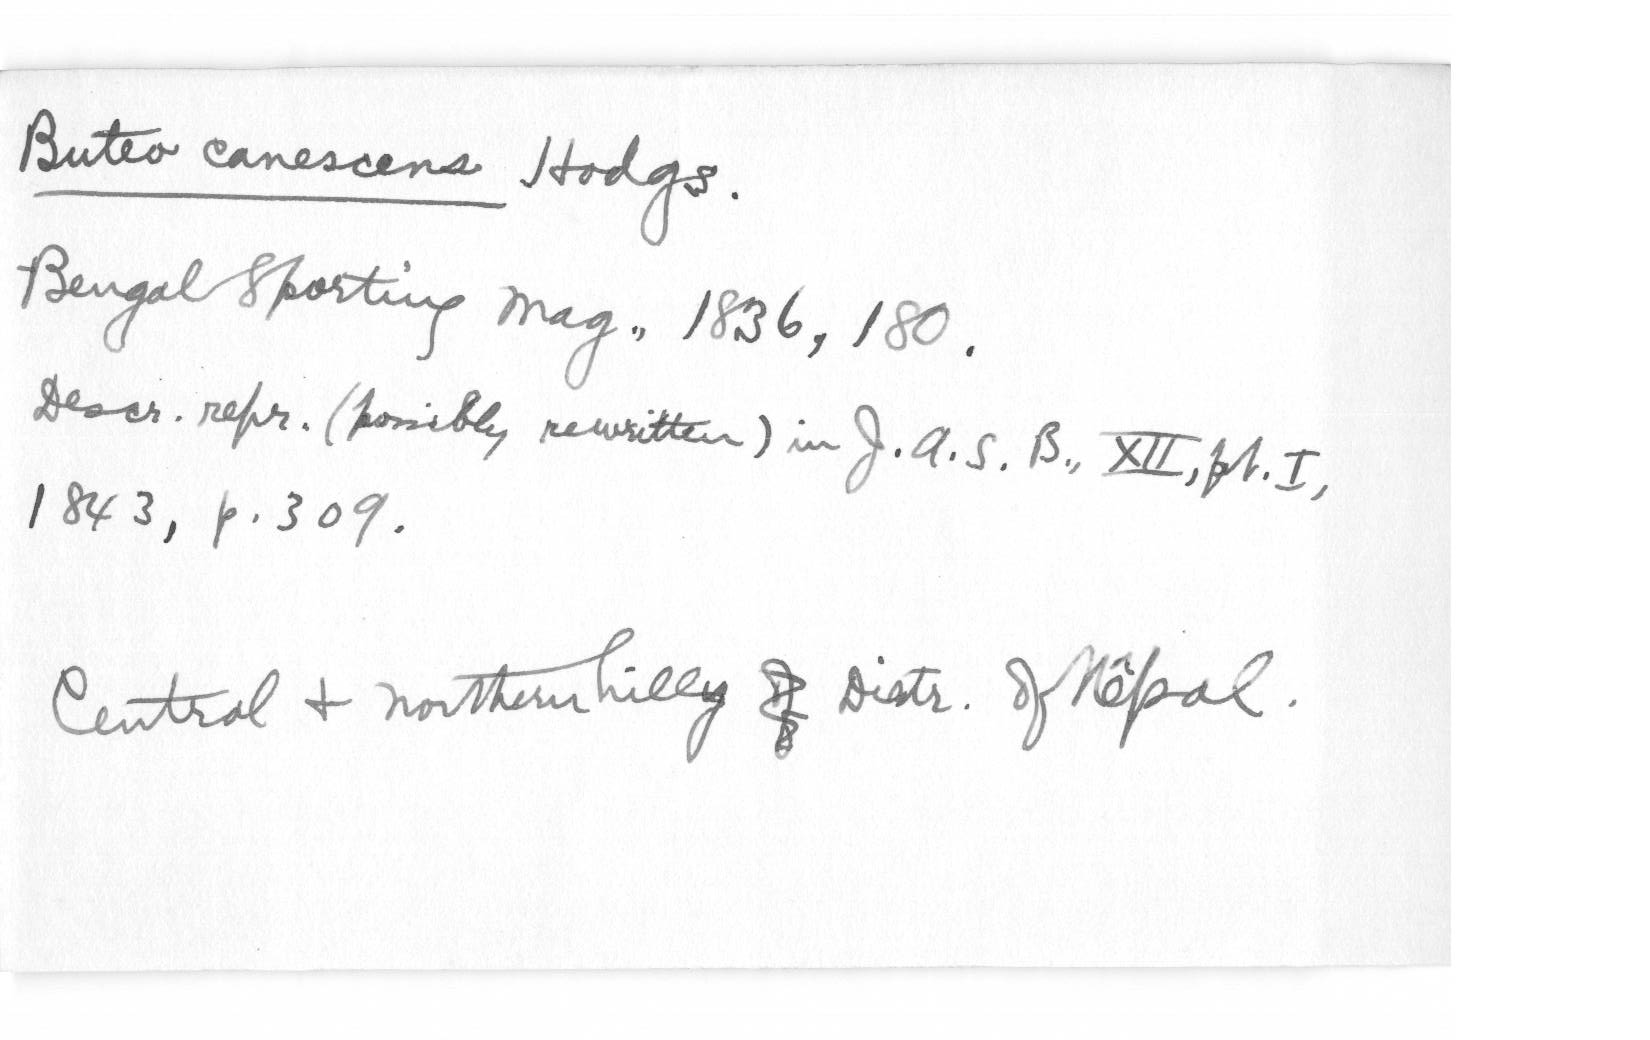 Buteo canescens Hodgs.
Bengal Sporting Mag., 1836, 180.
Descr. repr. (possibly rewritten) in J.A.S.B., XII, pt. I,
1843, p. 309.
Central + northern hilly Distr. of Nêpal.